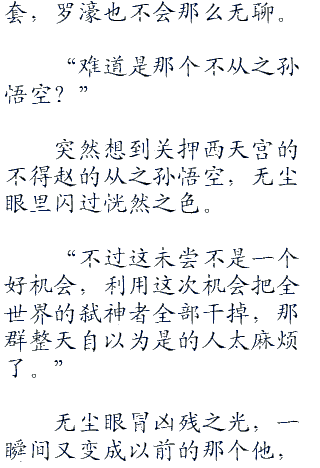 套，罗濠也不会那么无聊。
“难道是那个不从之孙
悟空？”
突然想到关押西天宫的
不得赵的从之孙悟空，无尘
眼里闪过恍然之色。
“不过这未尝不是一个
好机会，利用这次机会把全
世界的弑神者全部干掉，那
群整天自以为是的人太麻烦
了。”
无尘眼冒凶残之光，一
瞬间又变成以前的那个他，